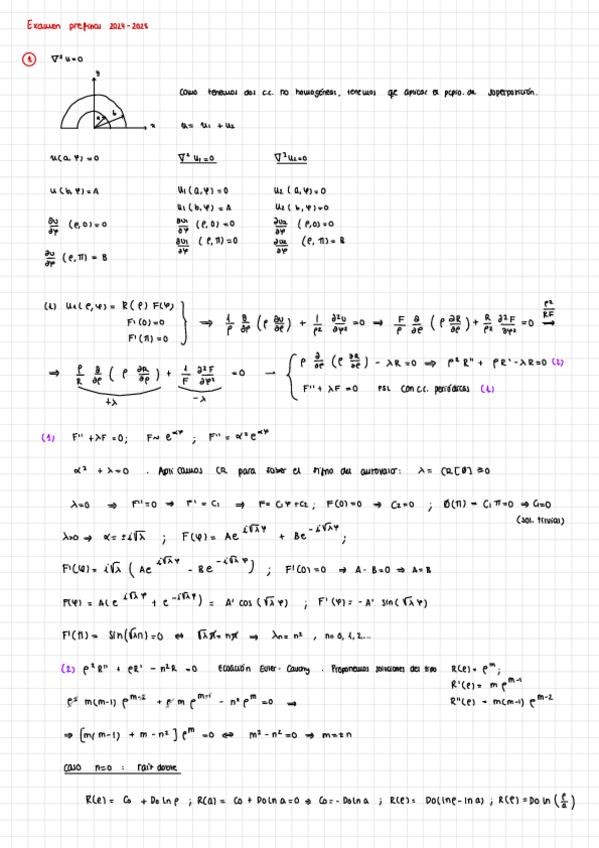 Examen prefinal 2024-2025
① ∇²u=0
y
a b
x
Como tenemos dos c.c. no homogéneas, tenemos que aplicar el ppio. de superposición.
u = u₁ + u₂
u(a,φ)=0 ∇²u₁=0 ∇²u₂=0
u(b,φ)=A u₁(a,φ)=0 u₂(a,φ)=0
u₁(b,φ)=A u₂(b,φ)=0
∂u/∂φ (ρ,0)=0 ∂u₁/∂φ (ρ,0)=0 ∂u₂/∂φ (ρ,0)=0
∂u/∂φ (ρ,π)=B ∂u₁/∂φ (ρ,π)=0 ∂u₂/∂φ (ρ,π)=B
(1) u₁(ρ,φ) = R(ρ) F(φ)
F'(0)=0
F'(π)=0
⇒ 1/ρ ∂/∂ρ (ρ ∂u/∂ρ) + 1/ρ² ∂²u/∂φ² =0 ⇒ F/ρ ∂/∂ρ (ρ ∂R/∂ρ) + R/ρ² ∂²F/∂φ² =0 ρ²/RF →
⇒ ρ/R ∂/∂ρ (ρ ∂R/∂ρ) + 1/F ∂²F/∂φ² =0 →
+λ -λ
ρ ∂/∂ρ (ρ ∂R/∂ρ) - λR =0 ⇒ ρ²R'' + ρR' - λR=0 (2)
F'' + λF =0 PSL con c.c. periódicas (1)
(1) F'' + λF =0; F~ e^αφ ; F'' = α²e^αφ
α² + λ=0 . Aplicamos CR para saber el signo del autovalor: λ = CR[Ø] ≥0
λ=0 ⇒ F''=0 ⇒ F' = C₁ ⇒ F= C₁φ+C₂; F(0)=0 ⇒ C₂=0 ; Ø(π) = C₁π=0 ⇒ C₁=0
(sol. trivial)
λ>0 ⇒ α= ±i√λ ; F(φ)= Ae^i√λφ + Be^-i√λφ ;
F'(φ)= i√λ ( Ae^i√λφ - Be^-i√λφ ) ; F'(0)=0 ⇒ A-B=0 ⇒ A=B
F(φ) = A(e^i√λφ + e^-i√λφ) = A' cos (√λφ) ; F'(φ)= -A' sin(√λφ)
F'(π)= sin(√λπ)=0 ⇔ √λπ= nπ ⇒ λn= n² , n=0,1,2...
(2) ρ²R'' + ρR' - n²R =0 Ecuación Euler-Cauchy. Proponemos soluciones del tipo R(ρ)= ρ^m;
R'(ρ)= m ρ^m-1
R''(ρ) = m(m-1) ρ^m-2
ρ² m(m-1) ρ^m-2 + ρ m ρ^m-1 - n²ρ^m =0 ⇒
⇒ [m(m-1) + m - n²] ρ^m =0 ⇔ m²-n²=0 ⇒ m=±n
caso n=0 : raíz doble
R(ρ)= C₀ + D₀lnρ ; R(a)= C₀ + D₀lna =0 ⇒ C₀=-D₀lna ; R(ρ)= D₀(lnρ-lna) ; R(ρ)=D₀ln(ρ/a)